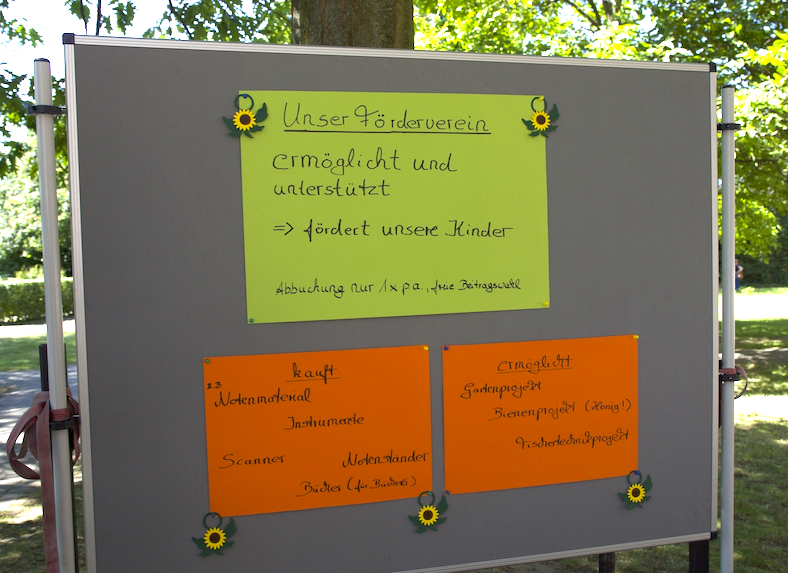 Unser Förderverein
ermöglicht und
unterstützt
=> fördert unsere Kinder
Abbuchung nur 1x p.a., freie Beitragswahl
kauft
z.B.
Notenmaterial
Instrumente
Scanner Notenständer
Bücher (für Bücherei)
ermöglicht
Gartenprojekt
Bienenprojekt (Honig!)
Fischertechnikprojekt